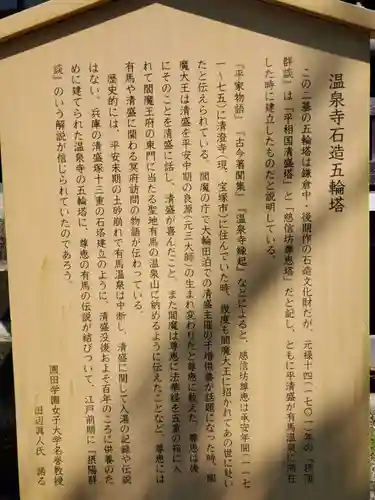 温泉寺石造五輪塔
この二基の五輪塔は鎌倉中・後期作の石造文化財だが、元禄十四(一七〇一)年の『摂陽
群談』は『平相国清盛塔』と『慈信坊尊恵塔』だと記し、ともに平清盛が有馬温泉に滞在
した時に建立したものだと説明している。
『平家物語』『古今著聞集』『温泉寺縁起』などによると、慈信坊尊恵は承安年間(一一七
一~七五)に清澄寺(現、宝塚市)に住んでいた時、幾度も閻魔大王に招かれてあの世に赴い
たと伝えられている。閻魔の庁で大輪田泊での清盛主催の千僧供養が話題になった時、閻
魔大王は清盛を平安中期の良源(元三大師)の生まれ変わりだと尊恵に教えた。尊恵は後
にそのことを清盛に話し、清盛が喜んだこと、また閻魔は尊恵に法華経を五重の箱に入
れて閻魔王府の東門に当たる聖地有馬の温泉山に納めるように伝えたことなど、尊恵には
有馬や清盛に関わる冥府訪問の物語が伝わっている。
歴史的には、平安末期の土砂崩れで有馬温泉は中断し、清盛に関して入湯の記録や伝説
はない。兵庫の清盛塚十三重の石塔建立のように、清盛没後およそ百年のころに供養のた
めに建てられた温泉寺の五輪塔に、尊恵の有馬の伝説が結びついて、江戸前期に『摂陽群
談』のいう解説が信じられていたのであろう。
園田学園女子大学名誉教授
田辺眞人氏 誦る